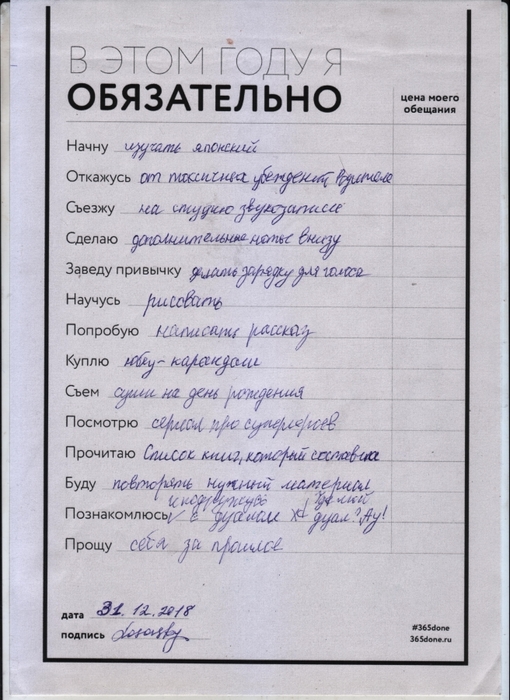 В ЭТОМ ГОДУ Я
ОБЯЗАТЕЛЬНО
цена моего
обещания
Начну изучать японский
Откажусь от токсичных убеждений Родителя
Съезжу на студию звукозаписи
Сделаю дополнительные ноты внизу
Заведу привычку делать зарядку для голоса
Научусь рисовать
Попробую написать рассказ
Куплю юбку-карандаш
Съем суши на день рождения
Посмотрю сериал про супергероев
Прочитаю Список книг, который составила
Буду повторять нужный материал
Познакомлюсь с дуалом Ау!
Прощу себя за прошлое
дата 31.12.2018
подпись
#365done
365done.ru